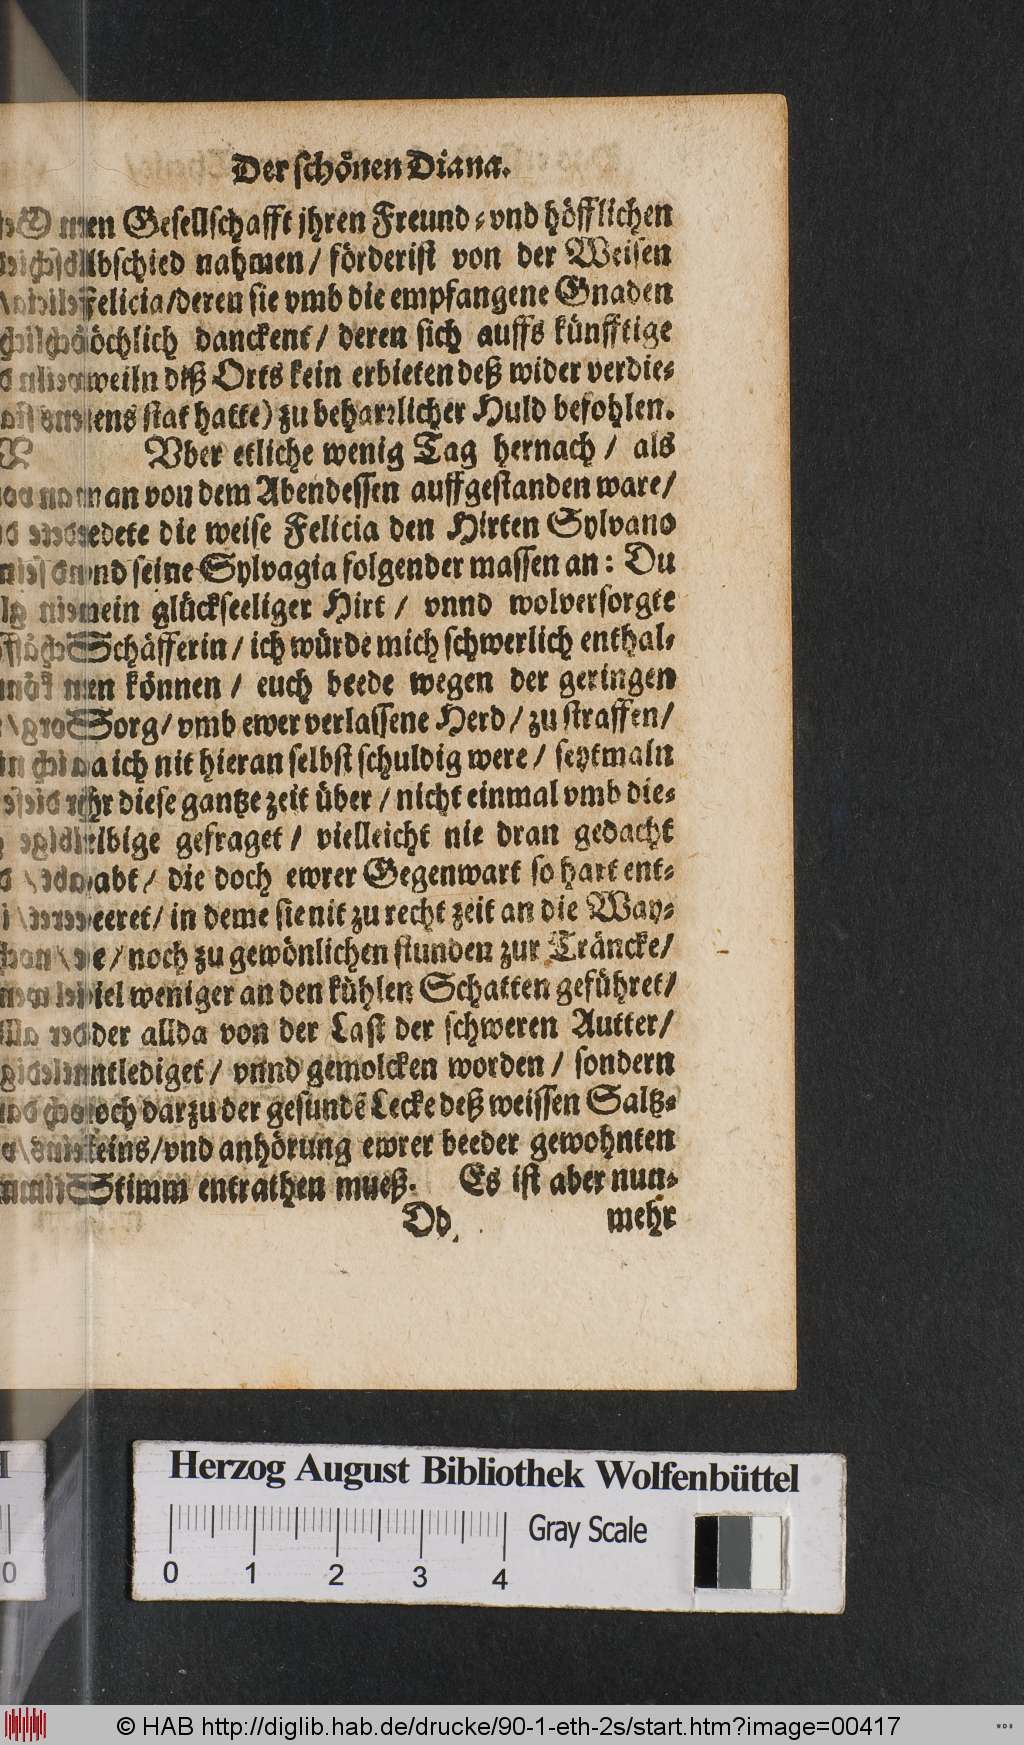 Der schönen Diana.
men Gesellschafft jhren Freund- vnd höfflichen
Abschied nahmen / förderist von der Weisen
Felicia/deren sie vmb die empfangene Gnaden
höchlich danckent / deren sich auffs künfftige
weiln diß Orts kein erbieten deß wider verdie-
nens stat hatte) zu beharrlicher Huld befohlen.
Vber etliche wenig Tag hernach / als
man von dem Abendessen auffgestanden ware/
redete die weise Felicia den Hirten Sylvano
vnd seine Sylvagia folgender massen an: Du
mein glückseeliger Hirt / vnnd wolversorgte
Schäfferin / ich würde mich schwerlich enthal-
ten können / euch beede wegen der geringen
Sorg/ vmb ewer verlassene Herd / zu straffen/
da ich nit hieran selbst schuldig were / seytmaln
jhr diese gantze zeit über / nicht einmal vmb die-
selbige gefraget / vielleicht nie dran gedacht
habt / die doch ewrer Gegenwart so hart ent-
beeret/ in deme sie nit zu recht zeit an die Way-
de / noch zu gewönlichen stunden zur Träncke/
viel weniger an den kühlen Schatten geführet/
oder allda von der Last der schweren Autter/
entlediget / vnnd gemolcken worden / sondern
noch darzu der gesundẽ Lecke deß weissen Saltz-
steins/vnd anhörung ewrer beeder gewohnten
Stimm entrathen mueß. Es ist aber nun-
Dd mehr
Herzog August Bibliothek Wolfenbüttel
0 1 2 3 4 Gray Scale
© HAB http://diglib.hab.de/drucke/90-1-eth-2s/start.htm?image=00417